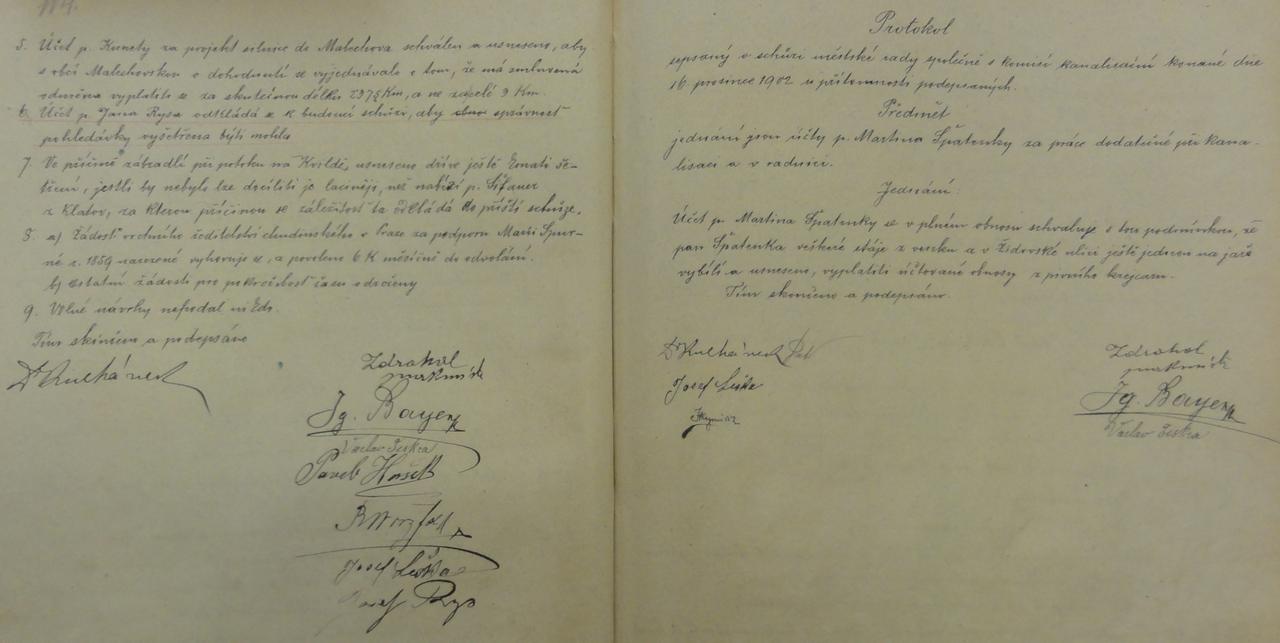 5. Účet p. Kunety za projekt silnice do Malechova schválen a usneseno, aby
s obcí Malechovskou o dohodnutí se vyjednávalo o tom, že má smluvená
odměna vyplatiti se za skutečnou délku km, a ne za celé 9 Km.
6. Účet p. Jana Rysa odkládá se k budoucí schůzi, aby správnost
pohledávky vyšetřena býti mohla
7. Ve příčině zábradlí při potoku na usneseno dříve ještě konati še-
tření, jestli by nebylo lze docíliti je laciněji, než nabízí p. Šifauer
z Klatov, za kterou příčinou se záležitost ta odkládá do příští schůze.
8. a) Žádosti vrchního ředitelství chudinského v Praze za podporu Marii Smr-
né r. 1859 narozené vyhovuje se, a povoleno 6 K měsíčně do odvolání.
b) Ostatní žádosti pro pokročilost času odročeny
9. Volné návrhy nepodal nikdo.
Tím skončeno a podepsáno
Dr Kulhánek
Zdráhal
Ig. Bayer
Václav Šeska
Pavel Hašek
Josef Liška
Josef Rys
Protokol
sepsaný o schůzi městské rady společně s komisí kanalisační konané dne
16. prosince 1902 u přítomnosti podepsaných.
Předmět
jednání jsou účty p. Martina Špatenky za práce dodatečné při kana-
lisaci a v radnici.
Jednání:
Účet p. Martina Špatenky se v plném obnosu schvaluje s tou podmínkou, že
pan Špatenka veškeré stáje z venku a v Židovské ulici ještě jednou na jaře
vybílí a usneseno, vyplatiti účtované obnosy z pivního krejcaru.
Tím skončeno a podepsáno.
Dr Kulhánek
Josef Liška
Zdráhal
Ig. Bayer
Václav Šeska